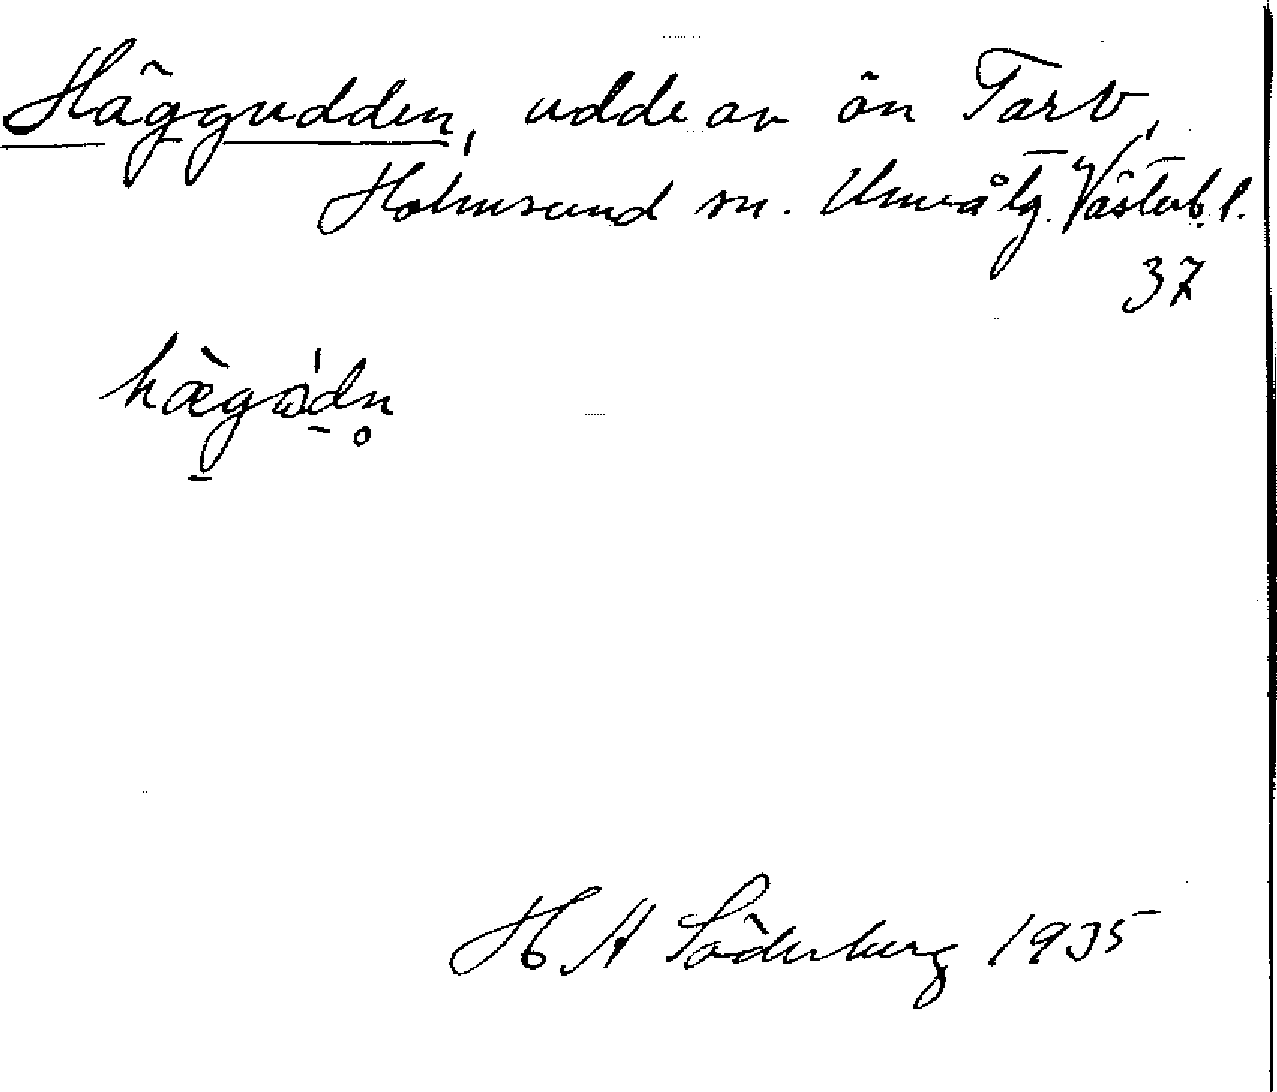 Häggudden, udde av ön Tarv,
Holmsund sn. Umeå tg. Västerb. l.
37
H A Söderberg 1935